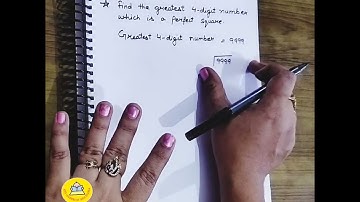 ☆ Find the greatest 4-digit number
which is a perfect square.
Greatest 4-digit number = 9999
9999